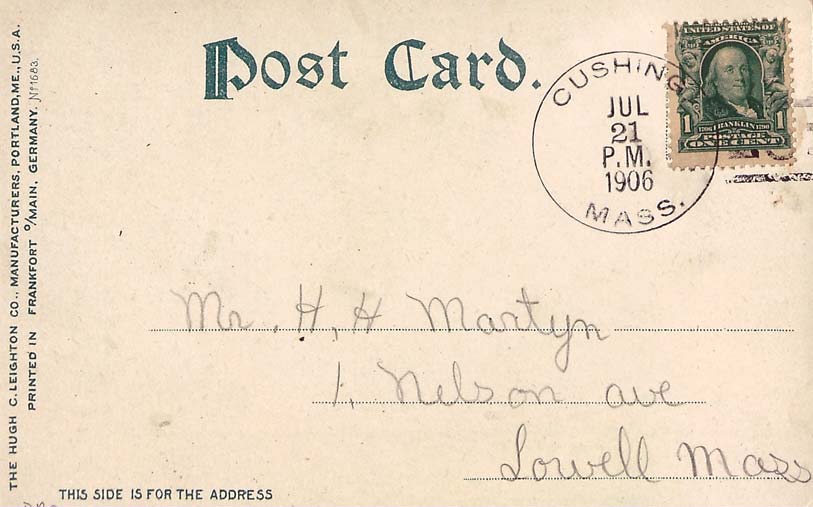 Post Card.
CUSHING
JUL
21
P.M.
1906
MASS.
UNITED STATES OF
AMERICA
1 1706 FRANKLIN 1790 1
POSTAGE
ONE CENT
THE HUGH C. LEIGHTON CO., MANUFACTURERS, PORTLAND, ME., U.S.A.
PRINTED IN FRANKFORT o/MAIN, GERMANY. No 1683.
Mr. H. H Martyn
1, Nelson ave
Lowell Mass
THIS SIDE IS FOR THE ADDRESS